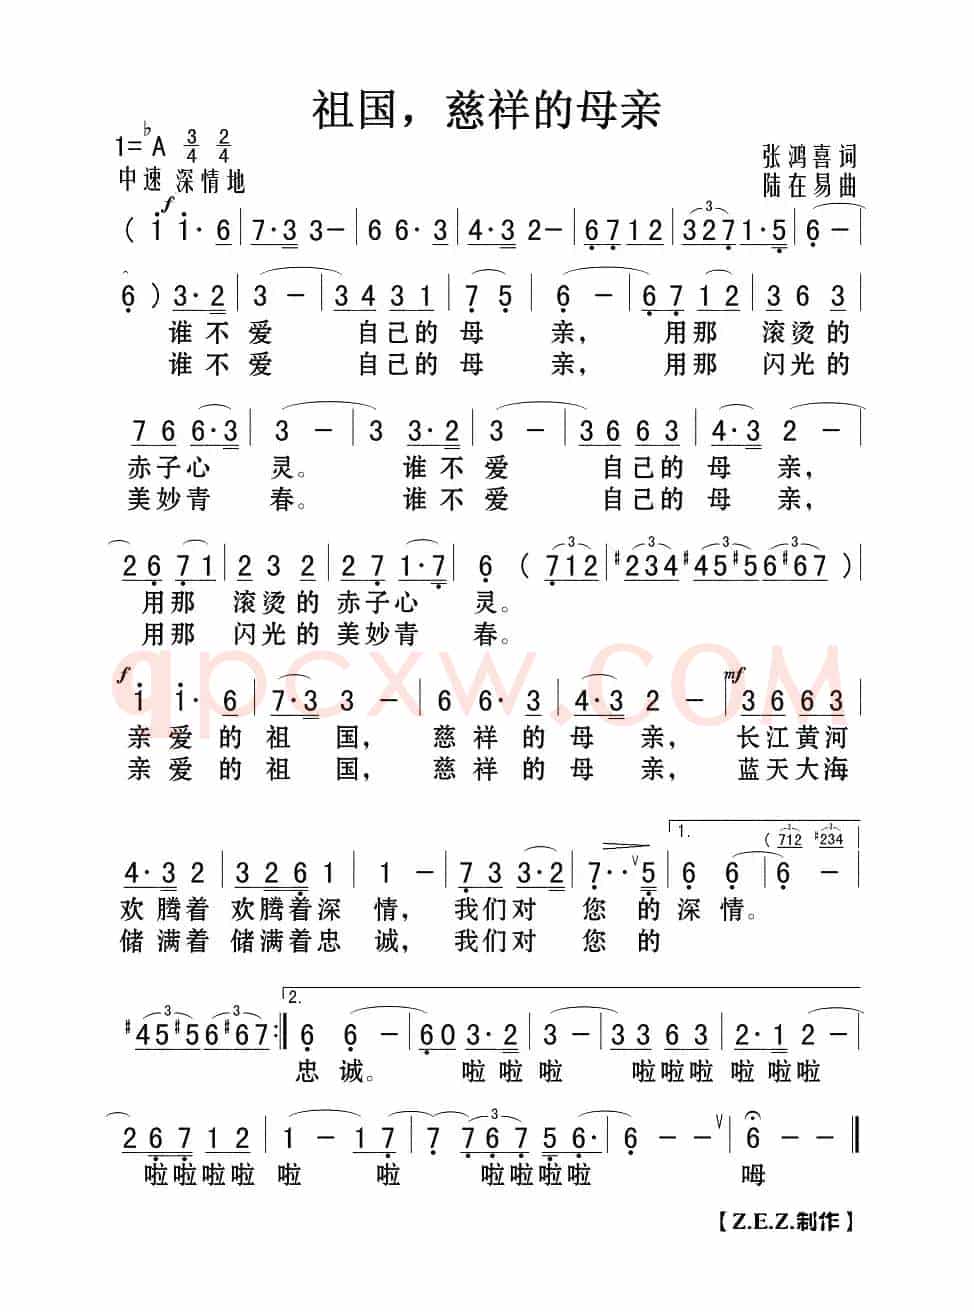 祖国，慈祥的母亲
1=♭A 3/4 2/4
张鸿喜词
中速 深情地
陆在易曲
f
( i i· 6 | 7·3 3 – | 6 6· 3 | 4·3 2 – | 6 7 1 2 | 3 2 7 1·5 | 6 – |
6 ) 3·2 | 3 – | 3 4 3 1 | 7 5 | 6 – | 6 7 1 2 | 3 6 3 |
谁不爱 自己的母亲， 用那 滚烫的
谁不爱 自己的母亲， 用那 闪光的
7 6 6·3 | 3 – | 3 3·2 | 3 – | 3 6 6 3 | 4·3 2 – |
赤子心 灵。 谁不爱 自己的母亲，
美妙青 春。 谁不爱 自己的母亲，
2 6 7 1 | 2 3 2 | 2 7 1·7 | 6 ( 7 1 2 | #2 3 4 #4 5 #5 6 #6 7 ) |
用那 滚烫的 赤子心 灵。
用那 闪光的 美妙青 春。
qpcxw.COM
f mf
i i· 6 | 7·3 3 – | 6 6· 3 | 4·3 2 – | 3 6 6 3 |
亲爱的祖国， 慈祥的母亲， 长江黄河
亲爱的祖国， 慈祥的母亲， 蓝天大海
1. ( 7 1 2 #2 3 4
4·3 2 | 3 2 6 1 | 1 – | 7 3 3·2 | 7·· V 5 | 6 6 – | 6 – |
欢腾着 欢腾着深 情， 我们对 您 的深情。
储满着 储满着忠 诚， 我们对 您 的
2.
#4 5 #5 6 #6 7 :| 6 6 – | 6 0 3·2 | 3 – | 3 3 6 3 | 2·1 2 – |
忠 诚。 啦啦啦 啦啦啦 啦啦啦
2 6 7 1 2 | 1 – 1 7 | 7 7 6 7 5 6· | 6 – – V | 6 – ‖
啦啦啦啦 啦 啦 啦 啦啦啦啦 呣
【Z.E.Z.制作】